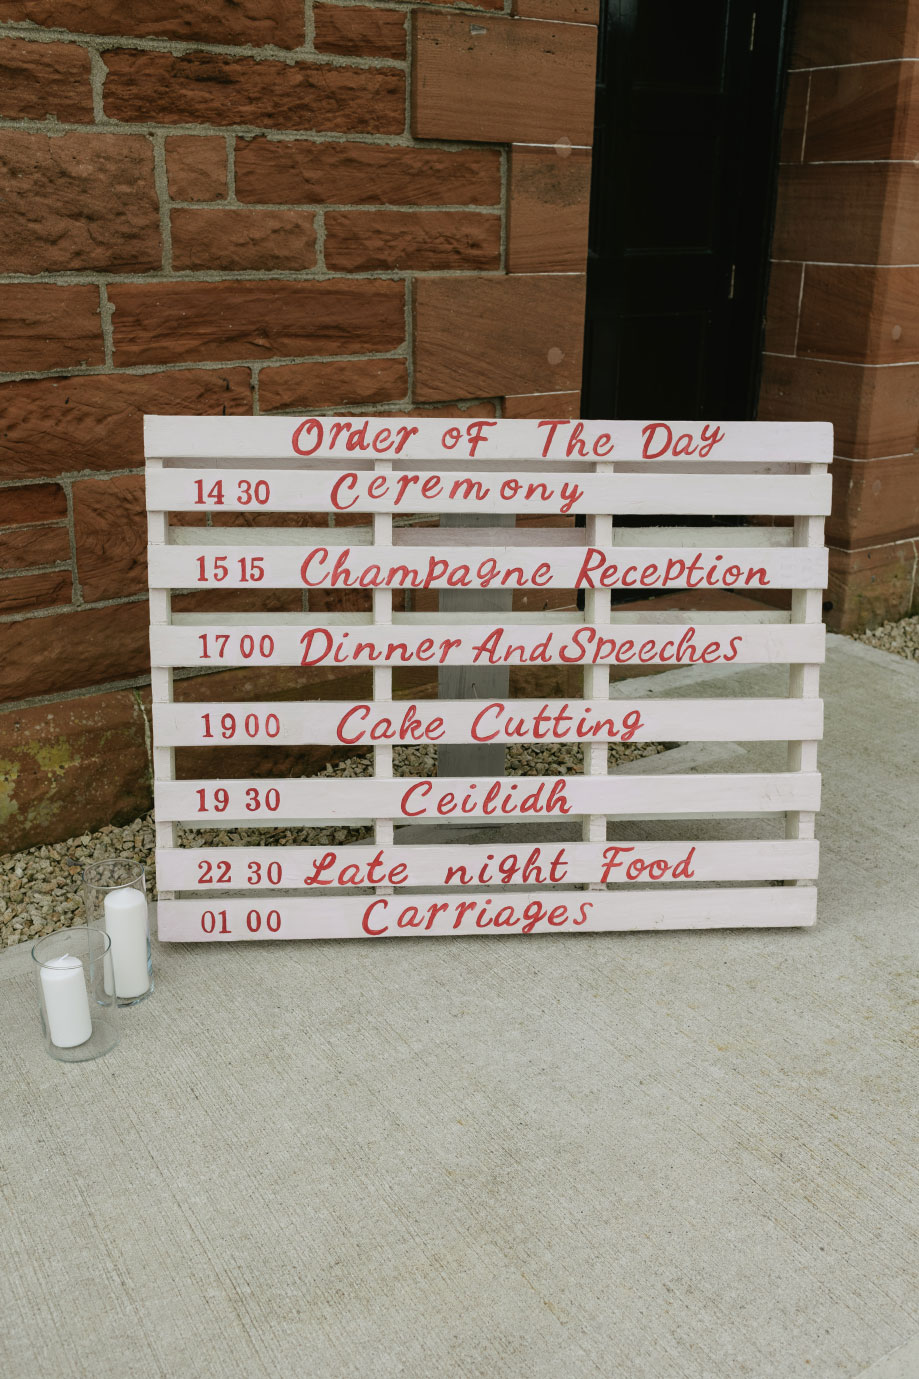 Order oF The Day
14 30 Ceremony
15 15 Champagne Reception
17 00 Dinner And Speeches
19 00 Cake Cutting
19 30 Ceilidh
22 30 Late night Food
01 00 Carriages